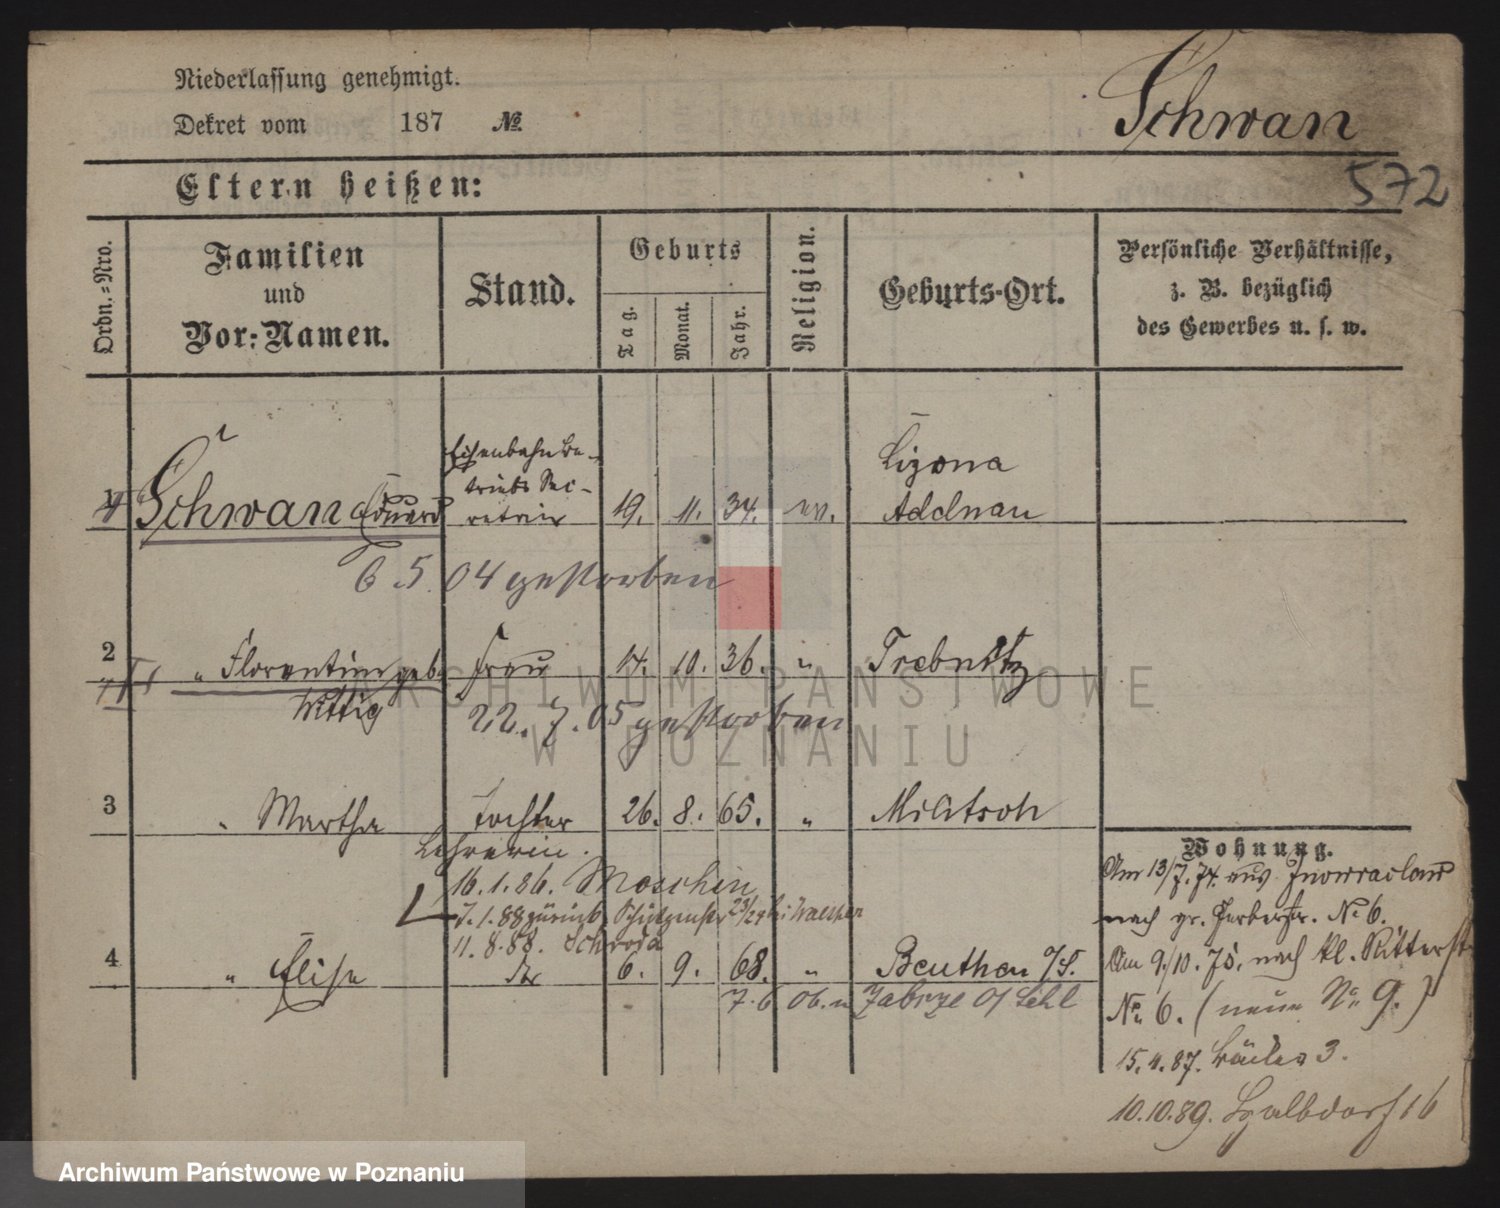 Niederlassung genehmigt.
Dekret vom 187 №
Schwan
572
Eltern heißen:
Ordn.-Nro.
Familien
und
Vor-Namen.
Stand.
Geburts
Tag.
Monat.
Jahr.
Religion.
Geburts-Ort.
Persönliche Verhältnisse,
z. B. bezüglich
des Gewerbes u. s. w.
1 Schwan Eduard
Eisenbahn Be-
triebs Sec-
retair
19. 11. 34. ev.
Adelnau
6 5. 04 gestorben
2 " Florentine geb.
Wittig
Frau 14. 10. 36. " Trebnitz
22. 7. 05 gestorben
3 " Martha Tochter 26. 8. 65. " Militsch
Lehrerin.
16. 1. 86. Moschin
7. 1. 88 zurück
11. 8. 88. Schroda
4 " Elise
6. 9. 68. " Beuthen O/S.
7. 6 06. n Zabrze O/Schl
Wohnung.
Am 13/7. 74. aus Inowraclaw
nach gr. Gerberstr. No 6.
Am 9/10. 75. nach kl. Ritterstr
No 6. (neue No 9.)
15. 4. 87. Bäcker 3.
10. 10. 89. Halbdorf 16
ARCHIWUM PAŃSTWOWE
W POZNANIU
Archiwum Państwowe w Poznaniu